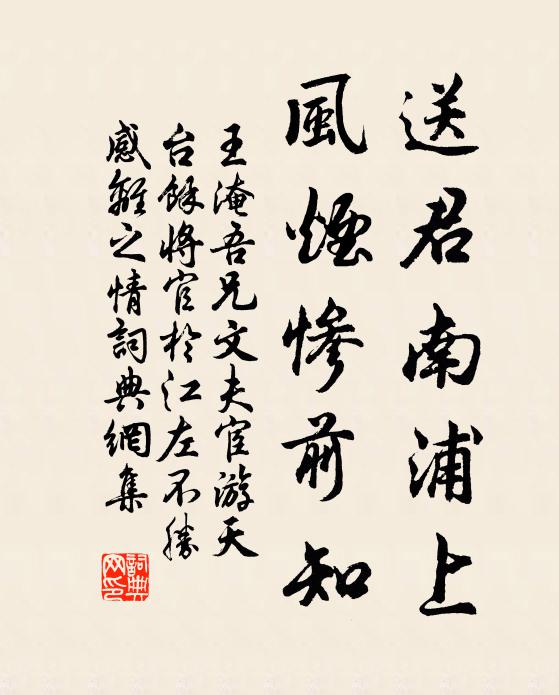 送君南浦上
風煙慘前知
王淹吾兄文夫宦游天
台餘將官於江左不勝
感離之情詞典網集
詞典网印